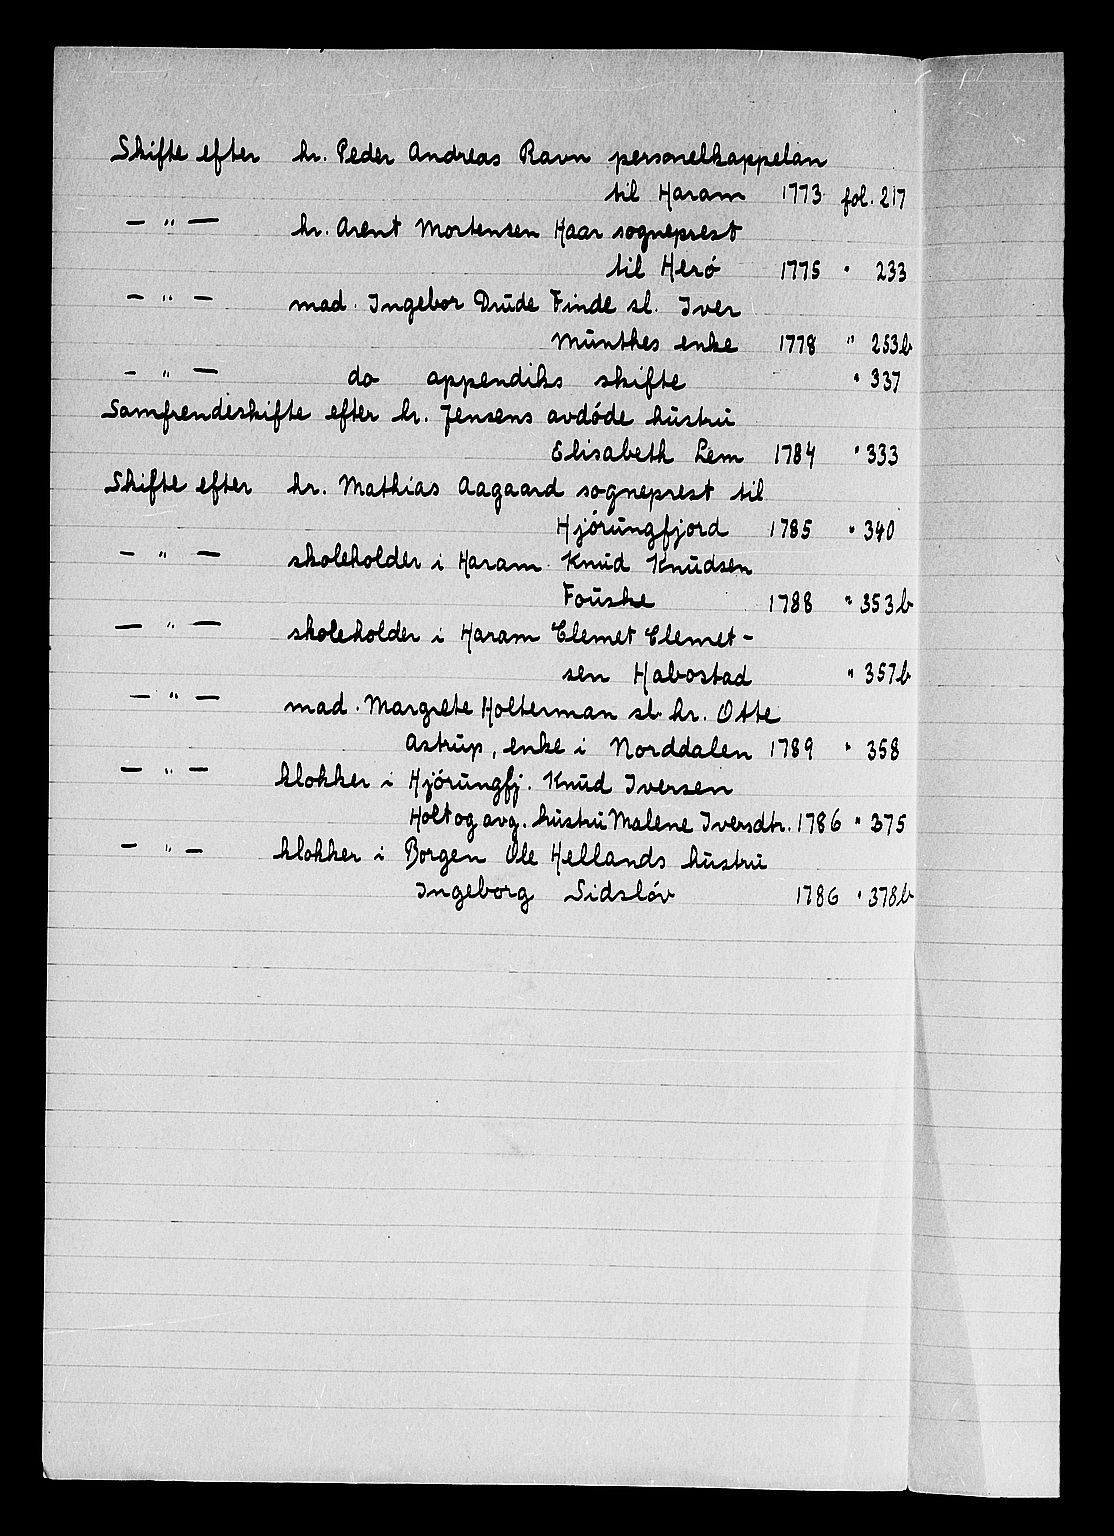 Skifte efter hr. Peder Andreas Ravn personelkappelan
til Haram 1773 fol. 217
— " — hr. Arent Mortensen Haar sogneprest
til Herö 1775 " 233
— " — mad. Ingebor Drude Finde sl. Iver
Munthes enke 1778 " 253b
— " — do appendiks skifte " 337
Samfrendeskifte efter hr. Jensens avdöde hustru
Elisabeth Lem 1784 " 333
Skifte efter hr. Mathias Aagaard sogneprest til
Hjörungfjord 1785 " 340
— " — skoleholder i Haram Knud Knudsen
Fouske 1788 " 353b
— " — skoleholder i Haram Clemet Clemet-
sen Habostad " 357b
— " — mad. Margrete Holterman sl. hr. Otte
Astrup, enke i Norddalen 1789 " 358
— " — klokker i Hjörungfj. Knud Iversen
Holt og avg. hustru Malene Iversdtr. 1786 " 375
— " — klokker i Borgen Ole Hellands hustru
Ingeborg Sidslöv 1786 " 378b